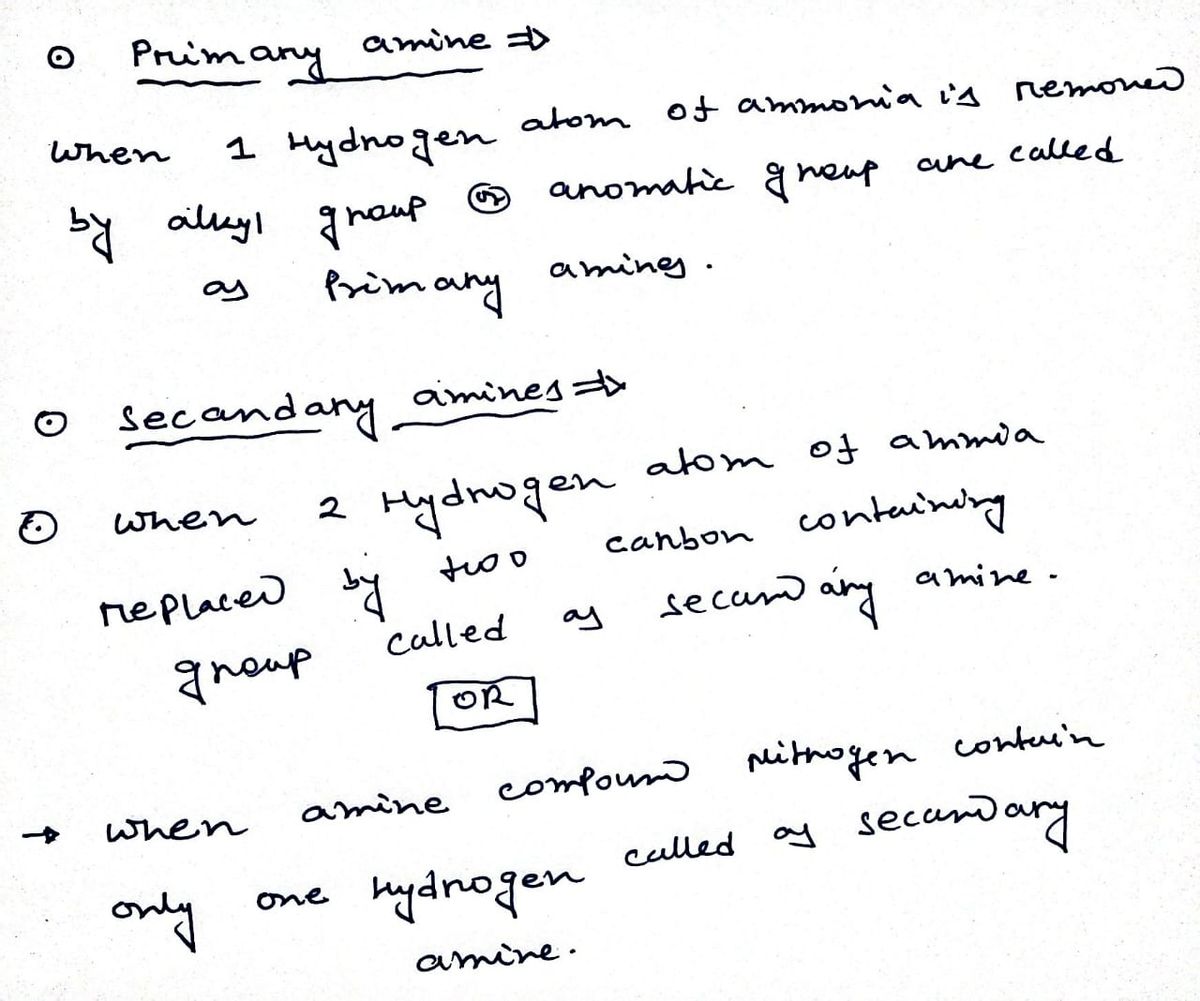 ⊙ Primary amine ⇒
When 1 Hydrogen atom of ammonia is removed
by alkyl group (or) aromatic group are called
as Primary amines.
⊙ Secandary amines ⇒
⊙ when 2 Hydrogen atom of ammia
replaced by two carbon containing
group called as secandary amine.
OR
→ when amine compound Nitrogen contain
only one hydrogen called as secandary
amine.